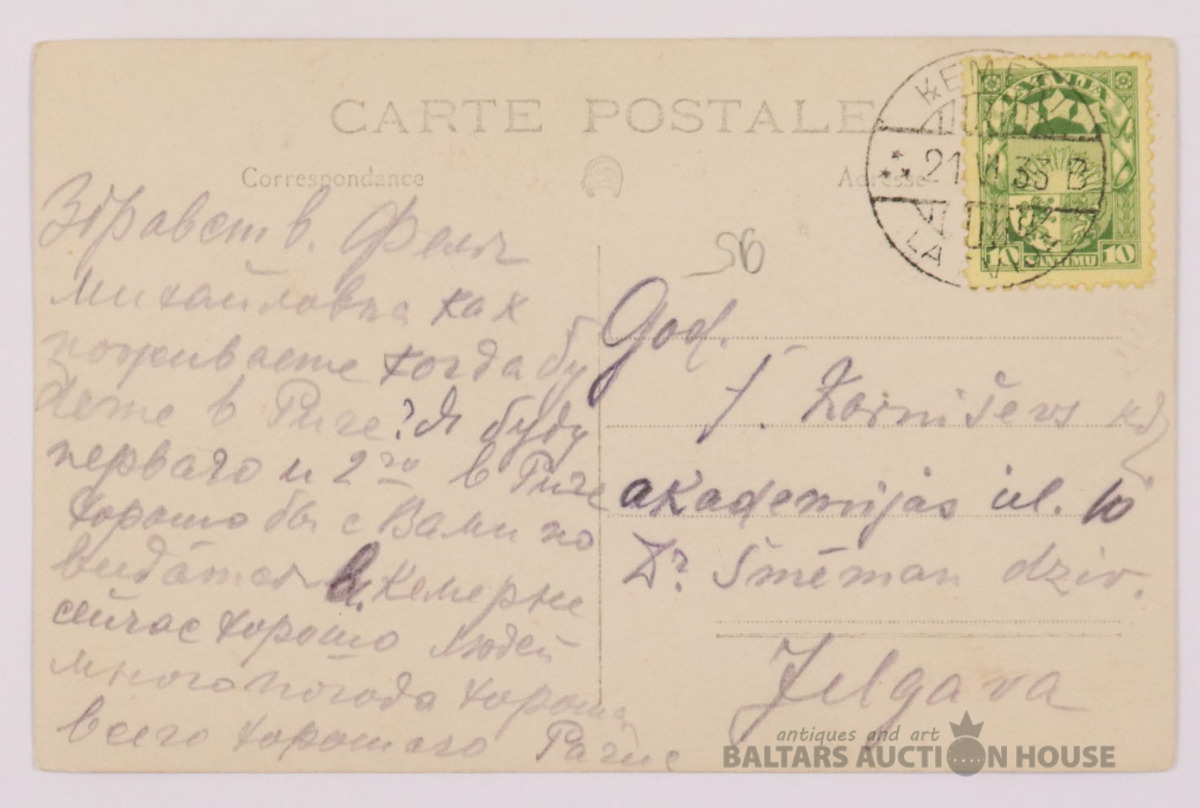 CARTE POSTALE
Correspondance
Adresse
ĶEMERI
21 VI 33 B
LATVIJA
LATVIJA
10 SANTIMU 10
56
Здравств. Феня
Михайловна как
поживаете когда бу
дете в Риге? Я буду
перваго и 2го в Риге
хорошо бы с Вами по
видатся в. Кемерне
сейчас хорошо людей
много погода хороша
всего хорошаго
God.
akademijas iel. 10
Dr Šmēman dziv.
Jelgava
antiques and art
BALTARS AUCTION HOUSE